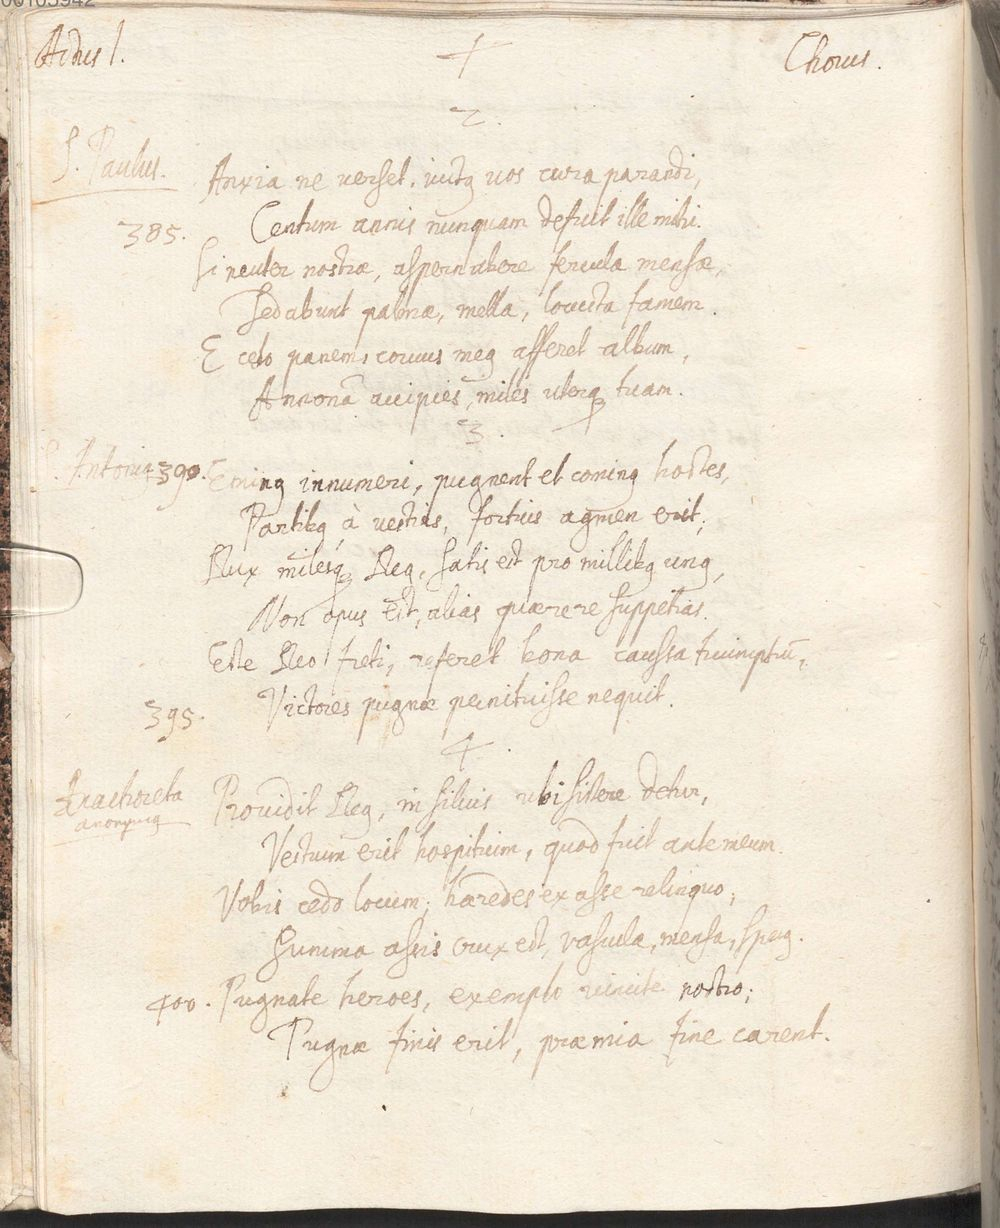 Actus I. 4 Chorus.
2.
S. Paulus. Anxia ne verset, victq vos cura parandi,
385. Centum annis nunquam defuit ille mihi.
Si neuter nostræ, aspernabere fercula mensæ,
Sedabunt palmæ, mella, locusta famem.
E celo panem, corvus meq afferet album,
Annonā accipies, miles uterq tuam.
3.
S. Antoniq 390. Eminq innumeri, pugnent et cominq hostes,
Partibq à vestris, fortius agmen erit;
Dux milesq Deq, satis est pro millibq unq,
Non opus est, alias quærere suppetias.
Este Deo freti, referet bona caussa triumphū,
395. Victores pugnæ penituisse nequit.
4.
Anachoreta Providit Deq, in silvis ubi sistere detur,
anonymq
Vestrum erit hospitium, quod fuit ante meum.
Vobis cedo locum; hæredes ex asse relinquo;
Summa assis crux est, vascula, mensa, specq.
400. Pugnate heroes, exemplo vincite nostro;
Pugnæ finis erit, præmia fine carent.